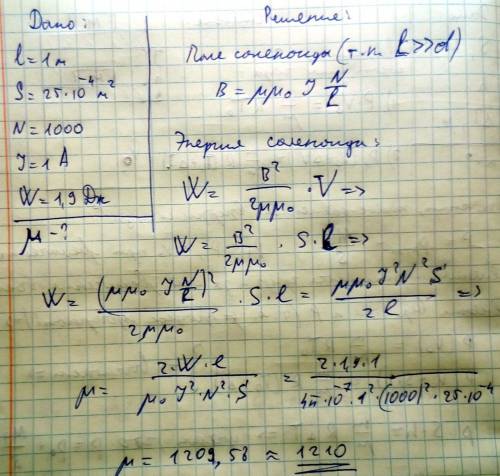 Дано:
l = 1 м
S = 25·10⁻⁴ м²
N = 1000
J = 1 A
W = 1,9 Дж
μ - ?
Решение:
Поле соленоида (т.к. l >> d)
B = μμ₀ J N/l
Энергия соленоида:
W = B²/2μμ₀ · V =>
W = B²/2μμ₀ · S · l =>
W = (μμ₀ J N/l)²/2μμ₀ · S · l = μμ₀ J² N² S/2l =>
μ = 2·W·l/μ₀ J²·N²·S = 2·1,9·1/4π·10⁻⁷·1²·(1000)²·25·10⁻⁴
μ = 1209,58 ≈ 1210